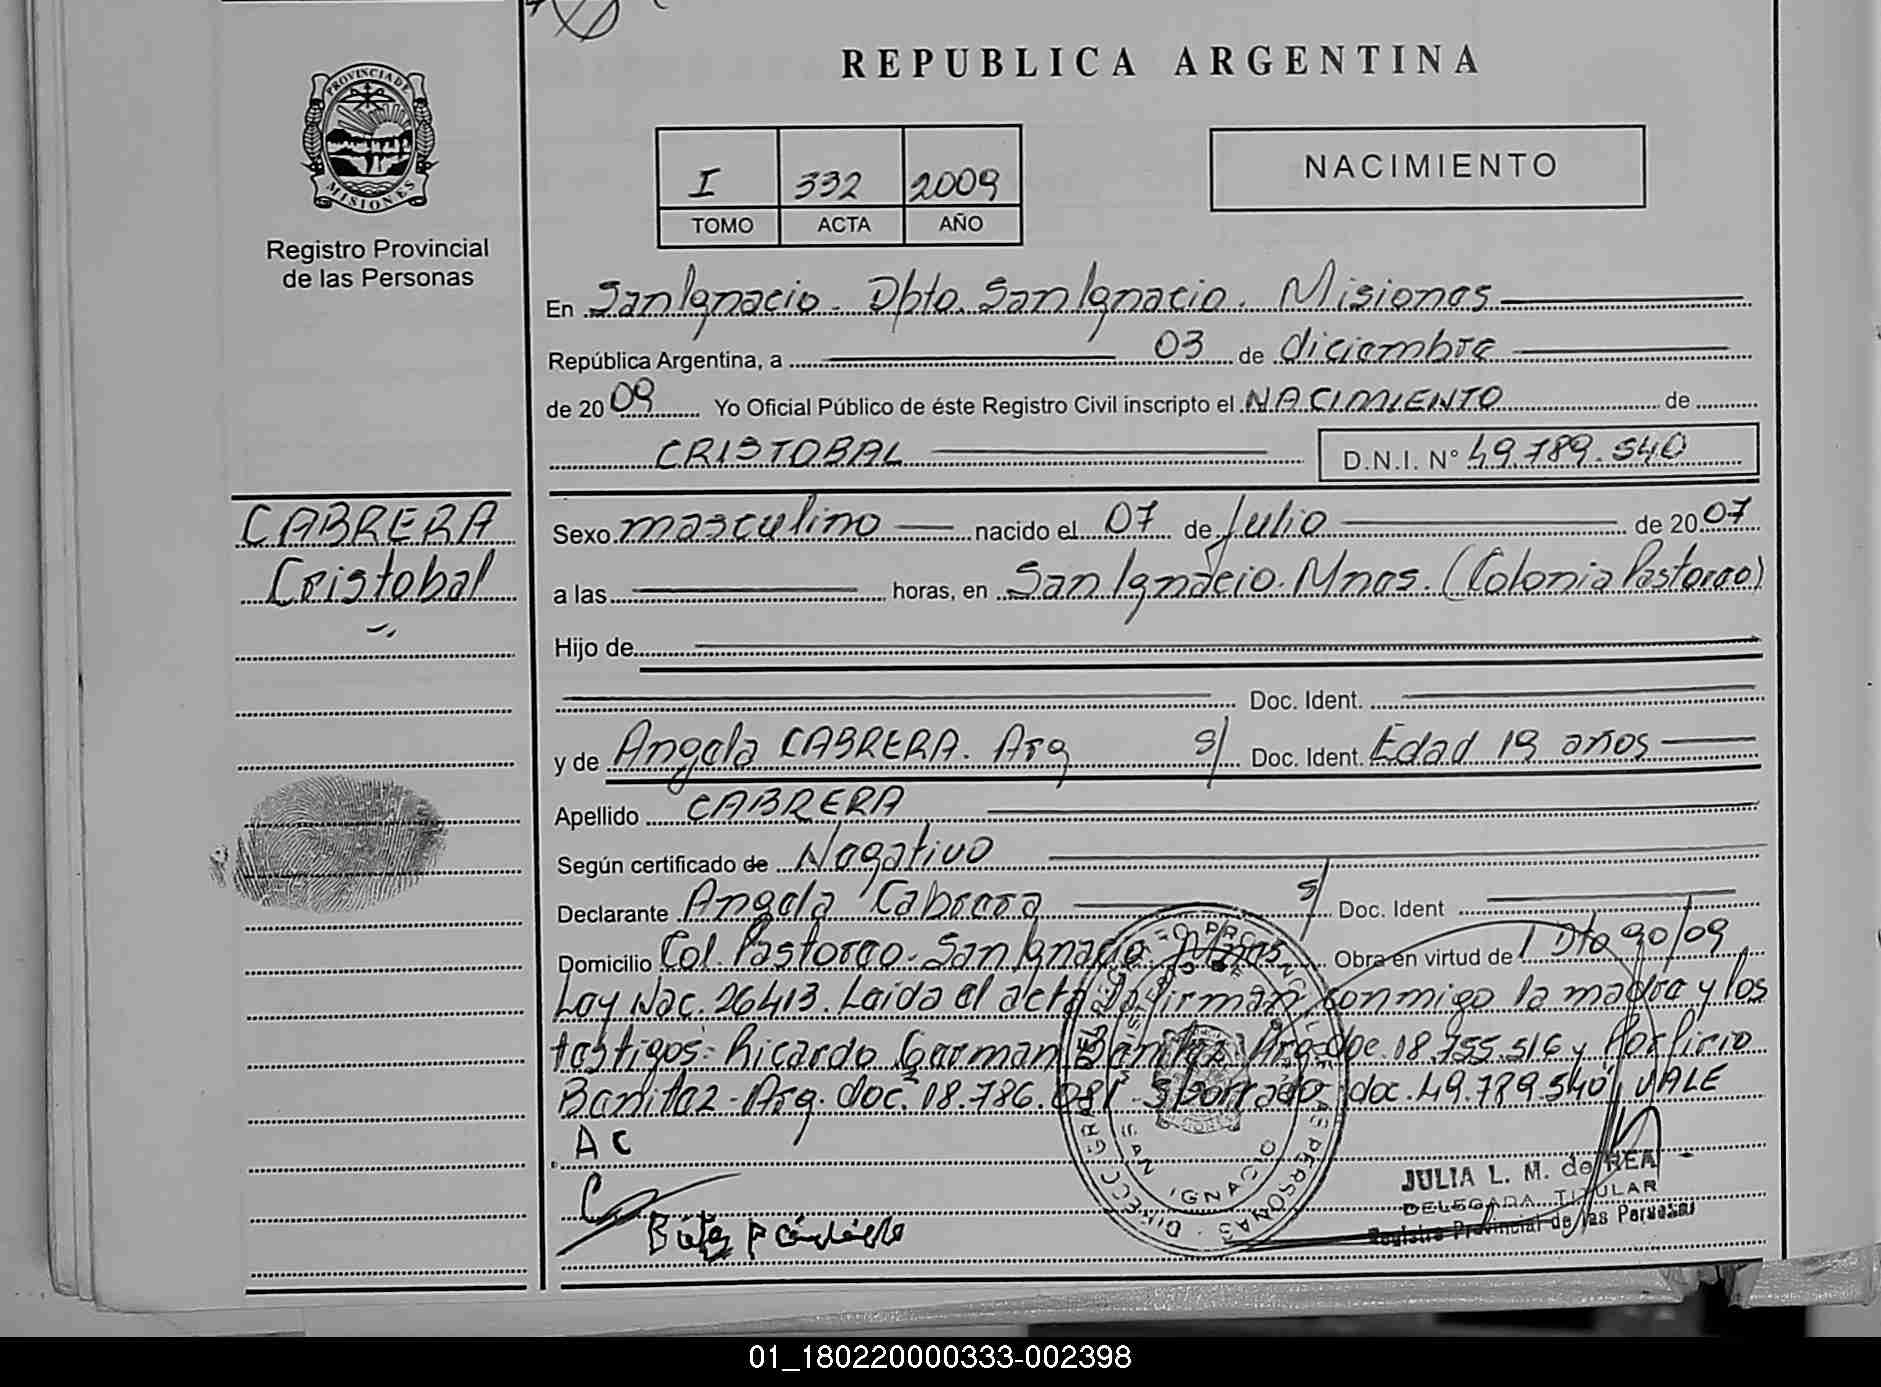 REPUBLICA ARGENTINA
PROVINCIA DE
MISIONES
Registro Provincial
de las Personas
I 332 2009
TOMO ACTA AÑO
NACIMIENTO
En San Ignacio. Dpto. San Ignacio. Misiones
República Argentina, a 03 de diciembre
de 2009 Yo Oficial Público de éste Registro Civil inscripto el NACIMIENTO de
CRISTOBAL D.N.I. N° 49.789.540
CABRERA
Cristobal
Sexo masculino nacido el 07 de Julio de 2007
a las horas, en San Ignacio. Mnes. (Colonia Pastoreo)
Hijo de
Doc. Ident.
y de Angela CABRERA. Arg s/ Doc. Ident. Edad 19 años
Apellido CABRERA
Según certificado de Negativo
Declarante Angela Cabrera s/ Doc. Ident
Domicilio Col. Pastoreo. San Ignacio Mnes Obra en virtud de Dto 90/09
Ley Nac. 26413. Leída el acta la firman conmigo la madre y los
testigos: Ricardo German Benitez Arg. doc. 18.755.516 y Porfirio
Benitez. Arg. doc. 18.786.081. S/borrado doc. 49.789.540, VALE
A C
SAN IGNACIO
JULIA L. M. de REA
DELEGADA TITULAR
Registro Provincial de las Personas
01_180220000333-002398